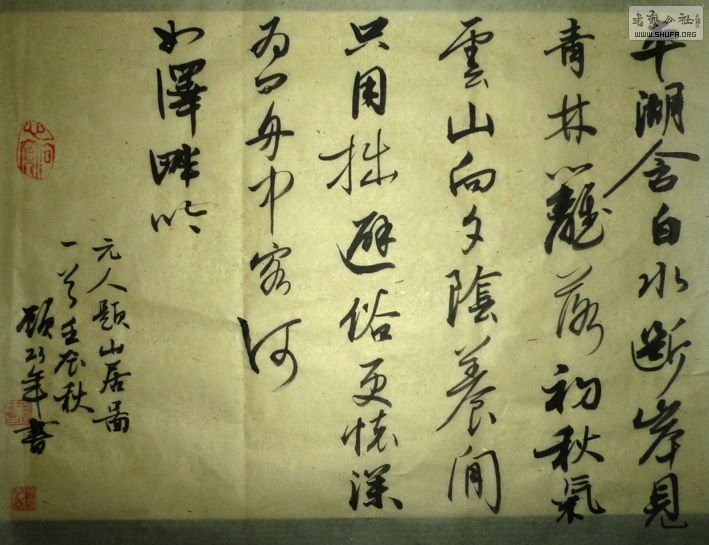 平湖含白水斷岸見
青林籬落初秋氣
雲山向夕陰養閒
只用拙避俗更懷深
為問舟中客何
如澤畔吟
元人題山居圖
一首壬辰秋
年書
書藝公社
WWW.SHUFA.ORG